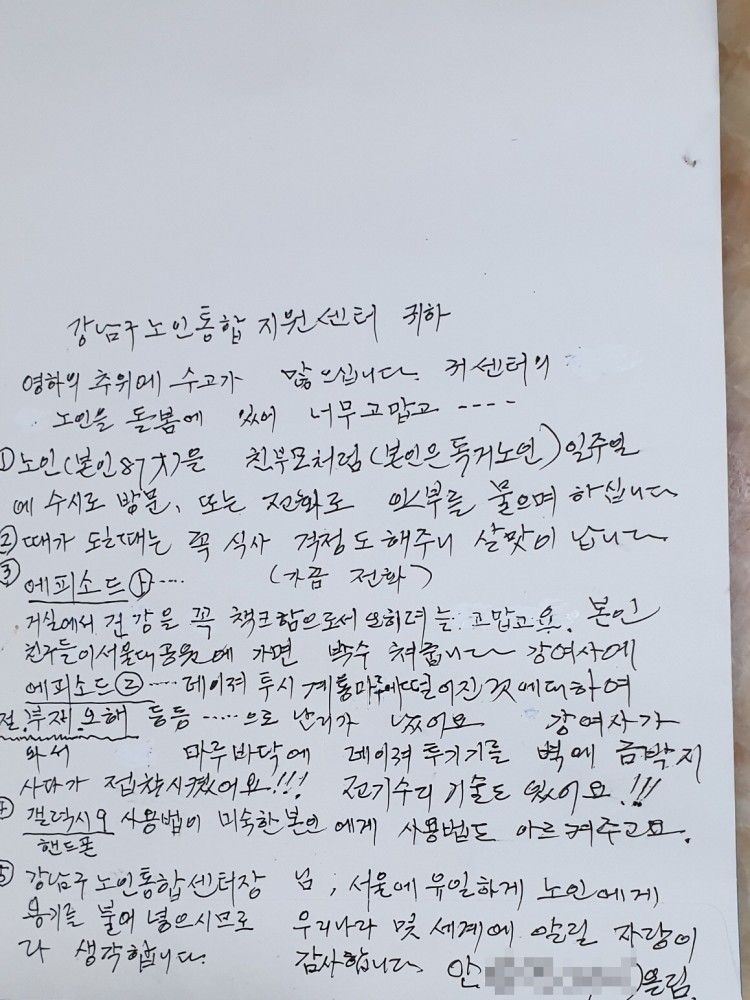 강남구 노인통합 지원센터 귀하
영하의 추위에 수고가 많으십니다. 귀센터의
노인을 돌봄에 있어 너무고맙고 ----
① 노인(본인87才)을 친부모처럼(본인은독거노인)일주일
에 수시로 방문, 또는 전화로 안부를 물으며 하십니다
② 때가 되면 때는 꼭 식사 걱정도해주니 살맛이 납니다
③ 에피소드 ① .... (가끔 전화)
거실에서 건강을 꼭 책크함으로서 오히려는 고맙고요. 본인
친구들이서울대공원에 가면 박수 쳐줍니다 강여사에
에피소드 ② ..... 레이져 투시 계통마루에떨어진것에대하여
부재 오해 등등 ..... 으로 난리가 났어요 강여사가
와서 마루바닥에 레이져 투기기를 벽에 금박지
사다가 접착시켰어요!!! 전기수리 기술도 있어요!!!
갤럭시9 사용법이 미숙한본인에게 사용법도 아르켜주고요.
핸드폰
⑤ 강남구노인통합센터장 님, 서울에 유일하게 노인에게
용기를 불어 넣으시므로 우리나라 및 세계에 알릴 자랑이
라 생각합니다. 감사합니다 안 )올림.